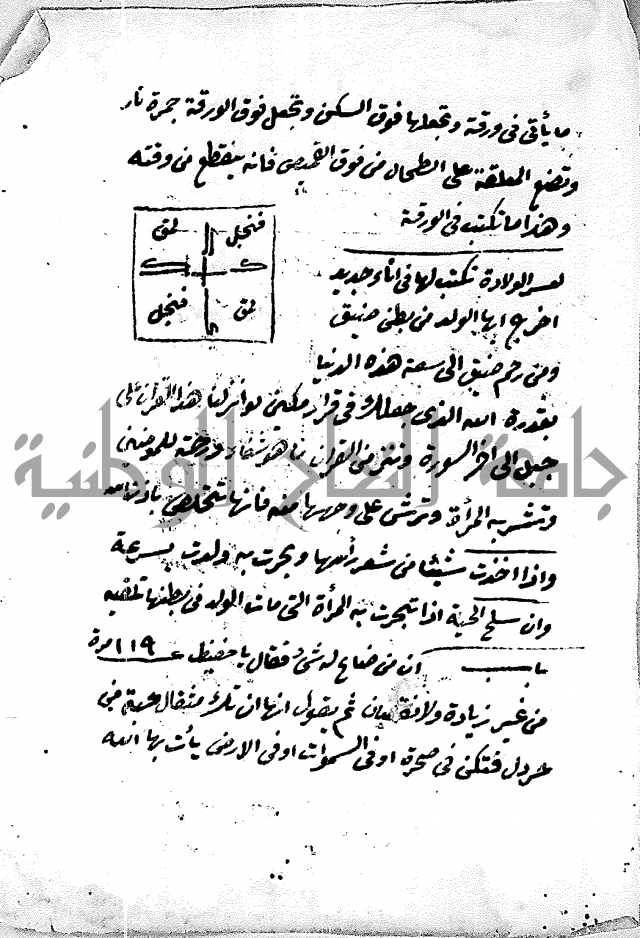 ما يأتي في ورقة وتجعلها فوق السكن وتجعل فوق الورقة جمرة نار
وتضع المعلقة على الطحال من فوق القميص فانه ينقطع من وقته
وهذا ما تكتب في الورقة
فنجل لمق
لمق فنجل
لعسر الولادة تكتب لها في اناء جديد
اخرج ايها الولد من بطن ضيق
ومن رحم ضيق الى سعة هذه الدنيا
بقدرة الله الذي جعلك في قرار مكين لو انزلنا هذا القران على
جبل الى اخر السورة وننزل من القران ما هو شفاء ورحمة للمومنين
وتشربه المرأة وترش على وجهها منه فانها تتخلص باذن الله
واذا اخذت شيئا من شعر راسها وبخرت به ولدت بسرعة
وان سلخ الحية اذا تبخرت به المرأة التي مات الولد في بطنها تلقيه
باب ان من ضاع له شيء فقال يا حفيظ ١١٩ مرة
من غير زيادة ولا نقصان ثم يقول انها ان تك مثقال حبة من
خردل فتكن في صخرة او في السموات او في الارض يأت بها الله
جامعة النجاح الوطنية